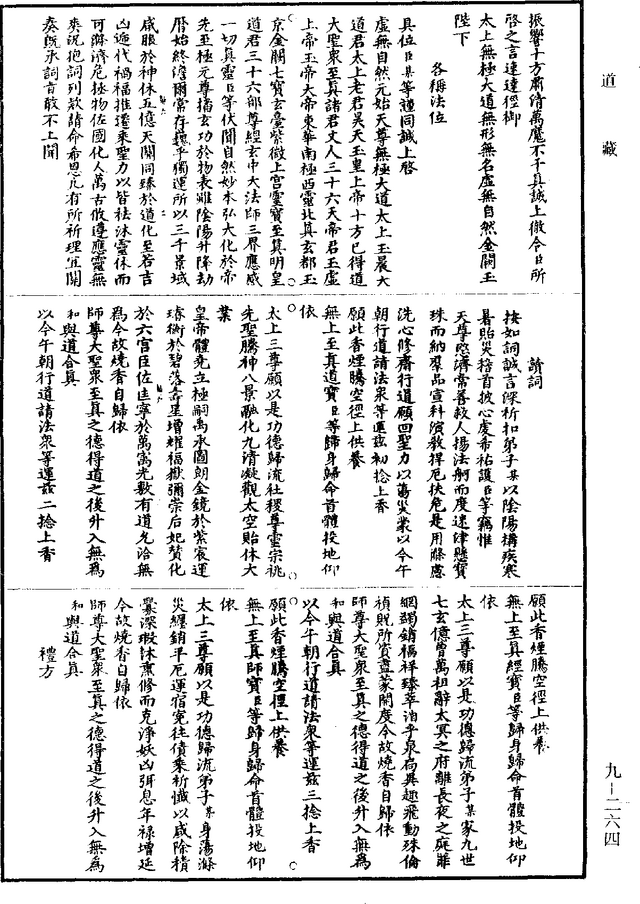 道藏
振響十方肅清萬魔不干真誠上徹今日所
啓之言速達徑御
太上無極大道無形無名虛無自然金闕玉
陛下
各稱法位
具位臣某等謹同誠上啓
虛無自然元始天尊無極大道太上玉晨大
道君太上老君昊天玉皇上帝十方已得道
大聖衆至真諸君丈人三十六天帝君玉虛
上帝玉帝大帝東華南極西靈北真玄都玉
京金闕七寶玄臺紫微上宮靈寶至真明皇
道君三十六部尊經玄中大法師三界應感
一切真靈臣等伏聞自然妙本弘大化於帝
先至極元尊播玄功於物表雖陰陽升降劫
曆始終澹爾常存巍乎獨運所以三千景域
咸服於神休五億天關同臻於道化至若吉
凶遞代禍福推遷乘聖力以皆祛沐靈休而
可濟濟危拯物佐國化人萬古攸遵應靈無
爽況抱詞列款請命希恩凡有所祈理宜開
奏旣承詞旨敢不上聞
讀詞
按如詞誠言深祈扣弟子某以陰陽構疾寒
暑貽災稽首披心虔希祐護臣等竊惟
天尊愍濟常善救人揚法舸而度迷律懸寶
珠而納羣品宣科演敎捍厄扶危是用滌慮
洗心修齋行道願回聖力以蕩災裳以今午
朝行道請法衆等運茲初捻上香
願此香煙騰空徑上供養
無上至真道寶臣等歸身歸命首體投地仰
依
太上三尊願以是功德歸流社稷尊靈宗祧
先聖騰神八景融化九清凝觀太空貽休大
業
皇帝體堯立極嗣禹承圖朗金鏡於紫宸運
璿衡於碧落壽星增耀福嶽彌崇后妃贊化
於六宮臣佐匡寧於萬寓光敷有道允洽無
爲今故燒香自歸依
師尊大聖衆至真之德得道之後升入無爲
和與道合真
以今午朝行道請法衆等運茲二捻上香
願此香煙騰空徑上供養
無上至真經寶臣等歸身歸命首體投地仰
依
太上三尊願以是功德歸流弟子某家九世
七玄億曾萬祖辭太冥之府離長夜之庭罪
網蠲銷福祥臻萃洎乎泉扃異趣飛動殊倫
禎貺所資盡蒙開度今故燒香自歸依
師尊大聖衆至真之德得道之後升入無爲
和與道合真
以今午朝行道請法衆等運茲三捻上香
願此香煙騰空徑上供養
無上至真師寶臣等歸身歸命首體投地仰
依
太上三尊願以是功德歸流弟子某身蕩滌
災纏銷平厄運宿寃往債乘祈懺以咸除積
釁深瑕沐熏修而克淨妖凶弭息年祿增延
今故燒香自歸依
師尊大聖衆至真之德得道之後升入無爲
和與道合真
禮方
九—二六四